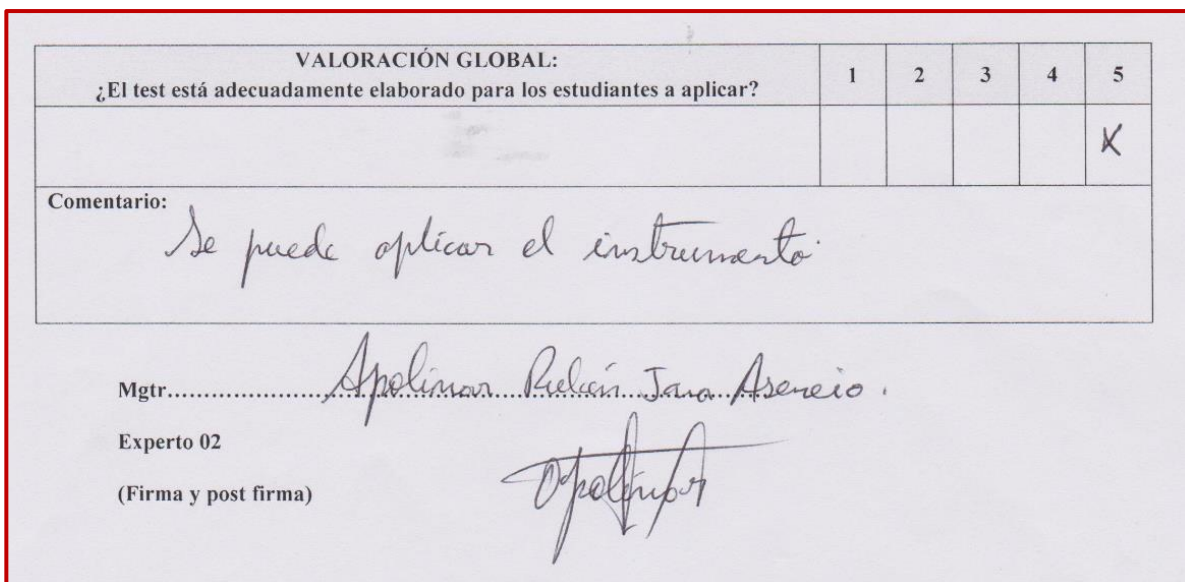 VALORACIÓN GLOBAL:
¿El test está adecuadamente elaborado para los estudiantes a aplicar?
1 2 3 4 5
X
Comentario:
Se puede aplicar el instrumento
Mgtr. Apolinar Rubén Jara Asencio.
Experto 02
(Firma y post firma)
Apolinar